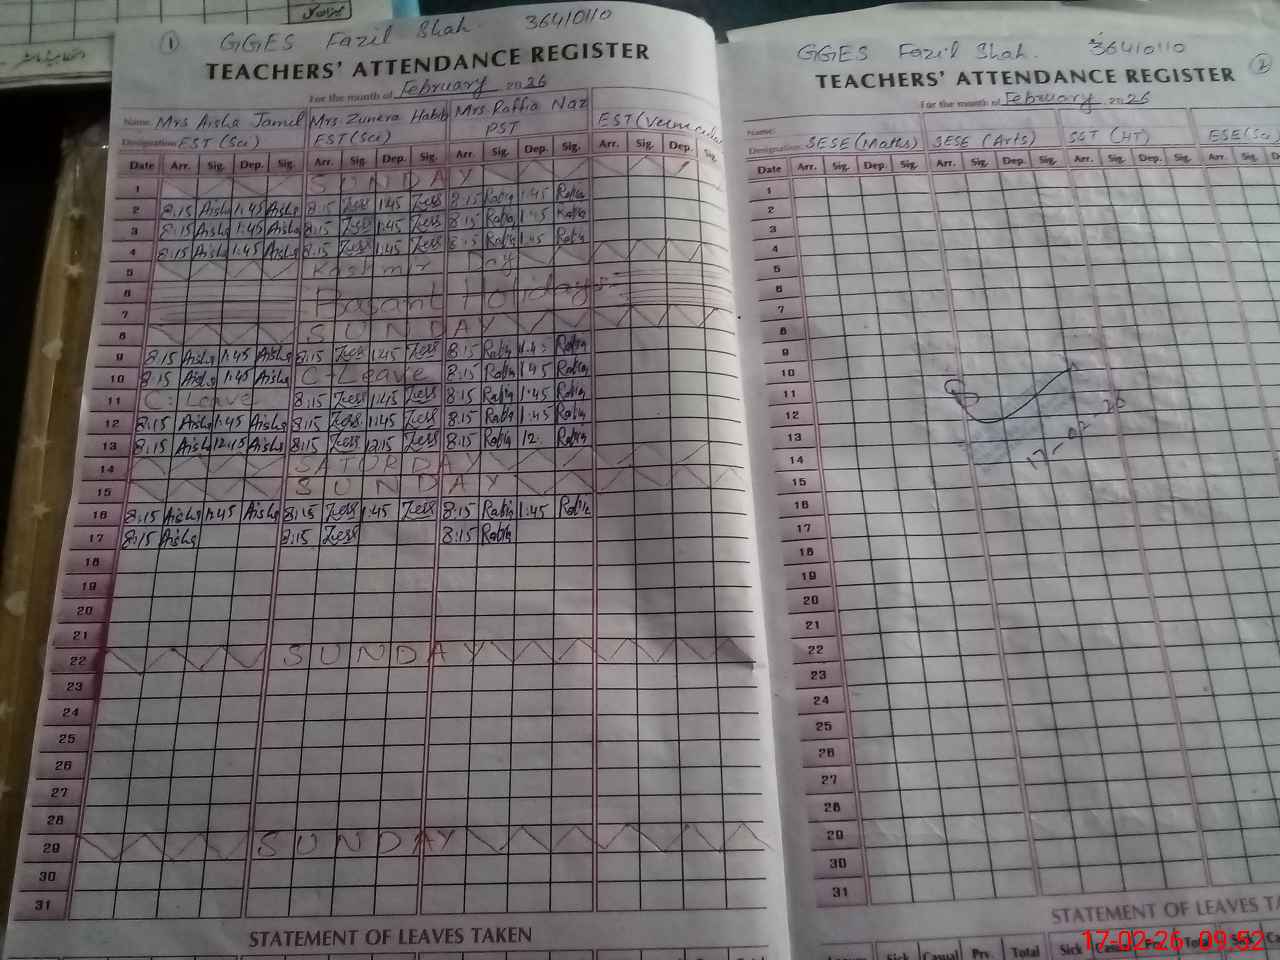 1 GGES Fazil Shah. 36410110
TEACHERS' ATTENDANCE REGISTER
For the month of February 2026
Name: Mrs Aisha Jamil Mrs. Zunera Habib Mrs. Raffia Naz
Designation: EST (Sci) EST (Sci) PST EST (Vernacular
Date Arr. Sig. Dep. Sig. Arr. Sig. Dep. Sig. Arr. Sig. Dep. Sig. Arr. Sig. Dep. Sig.
1 SUNDAY
2 8:15 Aisha 1:45 Aisha 8:15 1:45 8:15 Rabia 1:45 Rabia
3 8:15 Aisha 1:45 Aisha 8:15 1:45 8:15 Rabia 1:45 Rabia
4 8:15 Aisha 1:45 Aisha 8:15 1:45 8:15 Rabia 1:45 Rabia
5 Kashmir Day
6 Basant Holidays
7
8 SUNDAY
9 8:15 Aisha 1:45 Aisha 8:15 1:45 8:15 Rabia 1:45 Rabia
10 8:15 Aisha 1:45 Aisha C-Leave 8:15 Rabia 1:45 Rabia
11 C-Leave 8:15 1:45 8:15 Rabia 1:45 Rabia
12 8:15 Aisha 1:45 Aisha 8:15 1:45 8:15 Rabia 1:45 Rabia
13 8:15 Aisha 12:15 Aisha 8:15 12:15 8:15 Rabia 12: Rabia
14 SATORDAY
15 SUNDAY
16 8:15 Aisha 1:45 Aisha 8:15 1:45 8:15 Rabia 1:45 Rabia
17 8:15 Aisha 8:15 8:15 Rabia
18
19
20
21
22 SUNDAY
23
24
25
26
27
28
29 SUNDAY
30
31
STATEMENT OF LEAVES TAKEN
GGES Fazil Shah. 36410110 2
TEACHERS' ATTENDANCE REGISTER
For the month of February 2026
Name:
Designation: SESE (Maths) SESE (Arts) SST (HT) ESE (Sci
Date Arr. Sig. Dep. Sig. Arr. Sig. Dep. Sig. Arr. Sig. Dep. Sig. Arr. Sig.
1
2
3
4
5
6
7
8
9
10
11
12
13
14
15
16
17
18
19
20
21
22
23
24
25
26
27
28
29
30
31
17-02-26
STATEMENT OF LEAVES TA
Sick Casual Prv. Total Sick Casual Total Sick
17-02-26 09:52